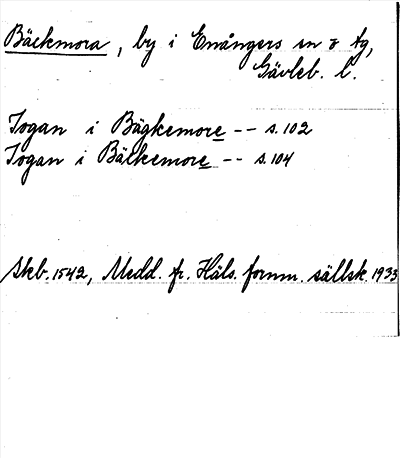 Bäckmora, by i Enångers sn o tg,
Gävleb. l.
Jogan i Bägkemore -- s. 102
Jogan i Bälkemore -- s. 104
Skb. 1542, Medd. fr. Häls. fornm. sällsk. 1933